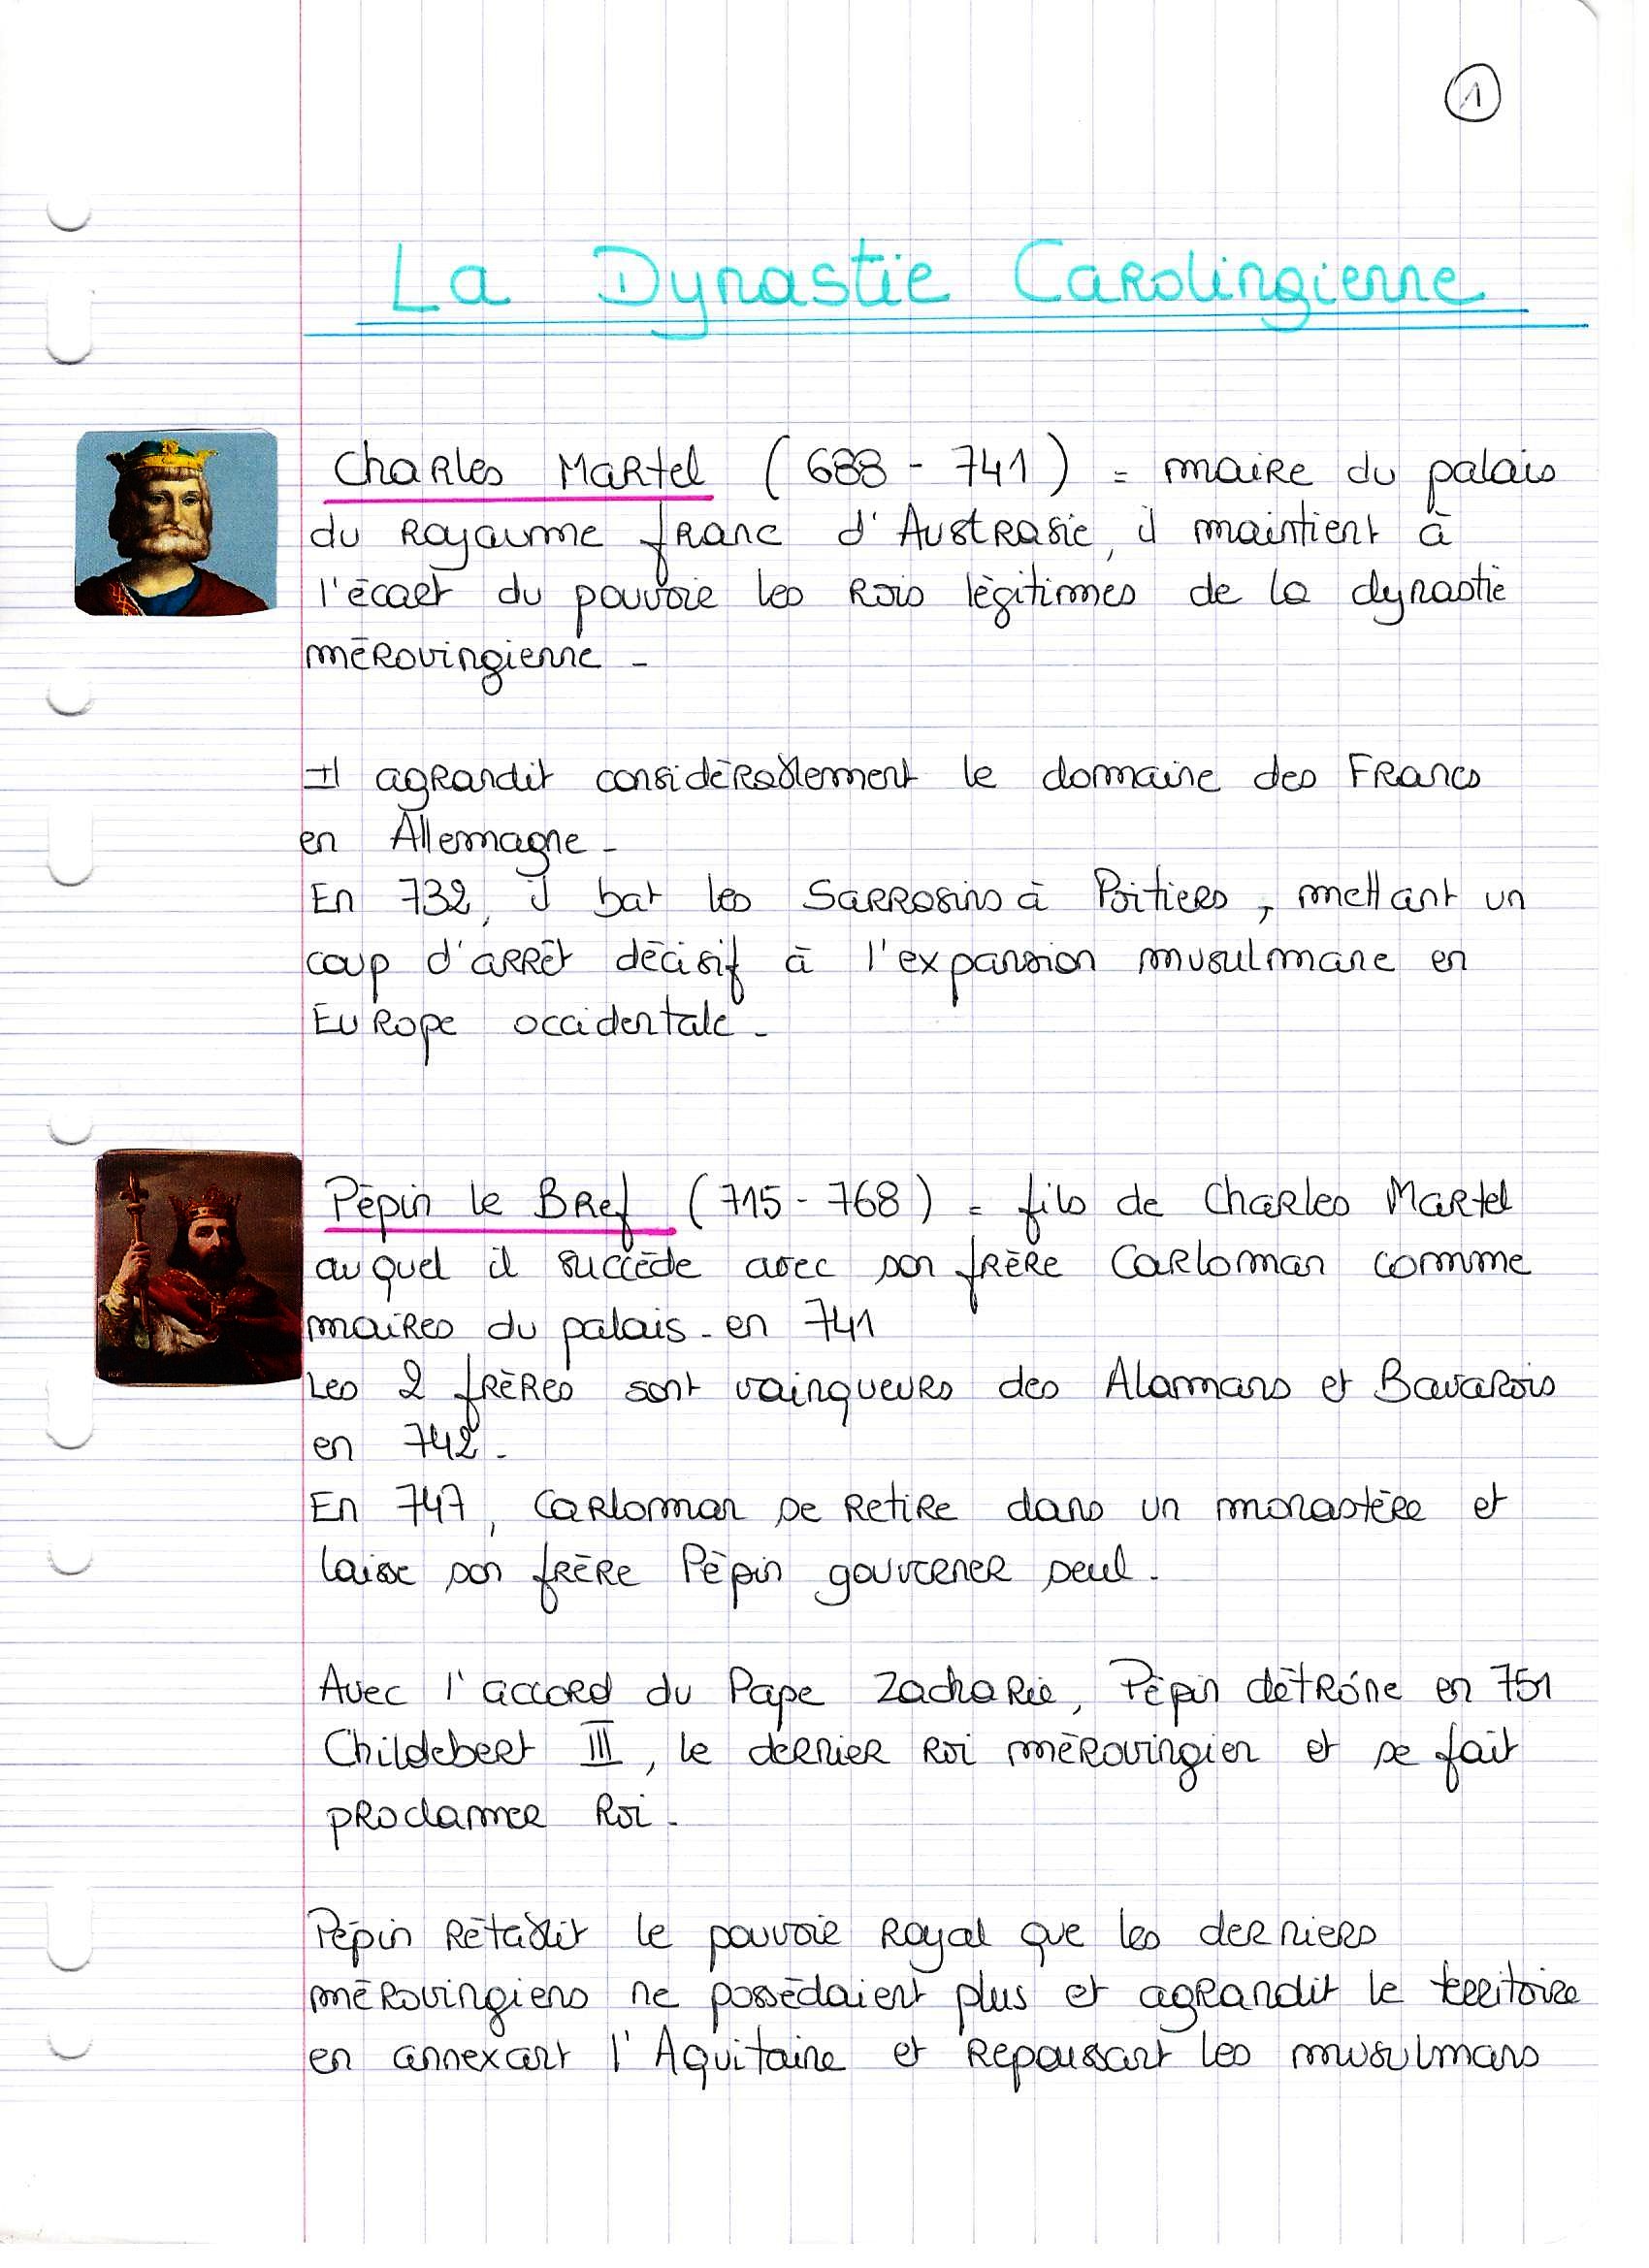 1
La Dynastie Carolingienne
Charles Martel (688 - 741) = maire du palais
du royaume franc d'Austrasie, il maintient à
l'écart du pouvoir les rois légitimes de la dynastie
mérovingienne -
Il agrandit considérablement le domaine des Francs
en Allemagne -
En 732, il bat les Sarrasins à Poitiers, mettant un
coup d'arrêt décisif à l'expansion musulmane en
Europe occidentale -
Pépin le Bref (715 - 768) = fils de Charles Martel
auquel il succède avec son frère Carloman comme
maires du palais - en 741
Les 2 frères sont vainqueurs des Alamans et Bavarois
en 742 -
En 747, Carloman se retire dans un monastère et
laisse son frère Pépin gouverner seul -
Avec l'accord du Pape Zacharie, Pépin détrône en 751
Childebert III, le dernier roi mérovingien et se fait
proclamer roi -
Pépin rétablit le pouvoir royal que les derniers
mérovingiens ne possédaient plus et agrandit le territoire
en annexant l'Aquitaine et repoussant les musulmans